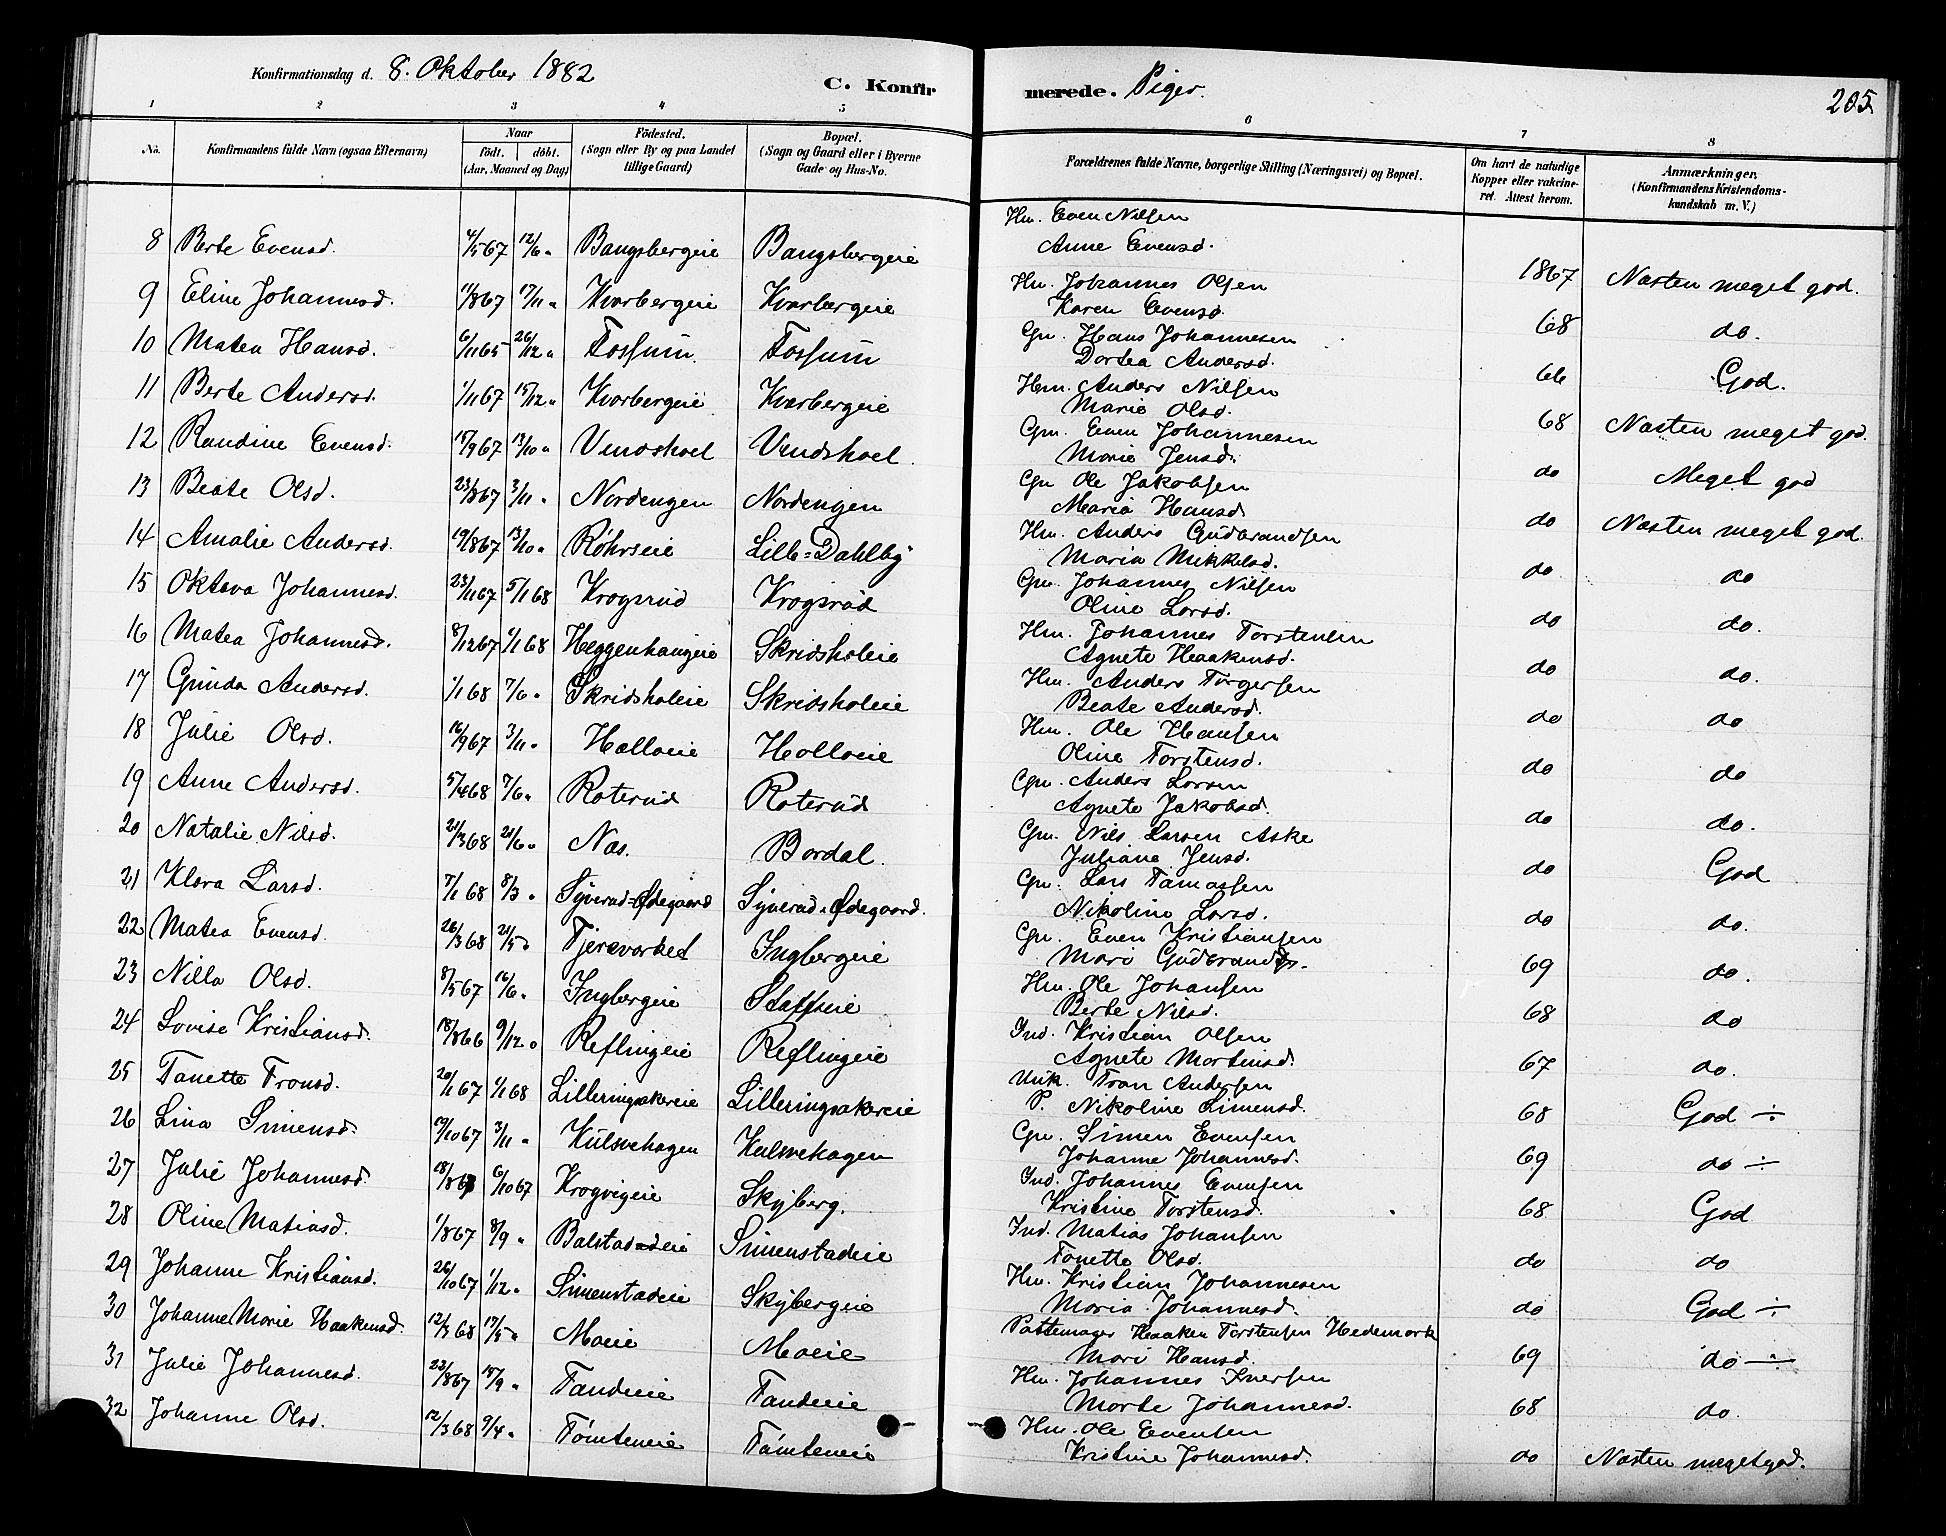 Konfirmationsdag d. 8. Oktober 1882
C. Konfirmerede. Piger.
205
1 2 3 4 5 6 7 8
No. Konfirmandens fulde Navn (ogsaa Efternavn) Naar födt. döbt. (Aar, Maaned og Dag) Födested. (Sogn eller By og paa Landet tillige Gaard) Bopæl. (Sogn og Gaard eller i Byerne Gade og Hus-No. Forældrenes fulde Navne, borgerlige Stilling (Næringsvei) og Bopæl. Om havt de naturlige Kopper eller vakcineret. Attest herom. Anmærkninger. (Konfirmandens Kristendomskundskab m. V.)
Hm. Even Nilsen
8 Berte Evensd. 4/5 67 12/6 " Bangsbergeie Bangsbergeie Anne Evensd. 1867 Næsten meget god.
Hm. Johannes Olsen
9 Eline Johannesd. 11/8 67 17/11 " Kvarbergeie Kvarbergeie Karen Evensd. 68 do.
Gm. Hans Johannesen
10 Matea Hansd. 6/11 65 26/12 " Fossum Fossum Dortea Andersd. 66 God.
Hm. Anders Nilsen
11 Berte Andersd. 1/11 67 15/12 " Kvarbergeie Kvarbergeie Marie Olsd. 68 Næsten meget god.
Gm. Even Johannesen
12 Randine Evensd. 15/9 67 13/10 " Vindshoel Vindshoel. Marie Jensd. do Meget god
Gm Ole Jakobsen
13 Beate Olsd. 23/8 67 3/11 " Nordengen Nordengen Maria Hansd. do Næsten meget god.
Hm. Anders Gudbrandsen
14 Amalie Andersd. 19/8 67 13/10 " Röhrseie Lille=Dahlby Maria Mikkelsd. do do
Gm. Johannes Nilsen
15 Oktava Johannesd. 23/11 67 5/1 68 Krogsrud Krogsrud Oline Larsd. do do.
Hm. Johannes Torstensen
16 Matea Johannesd. 8/12 67 1/1 68 Heggenhaugeie Skridsholeie Agnete Haakensd. do do.
Hm. Anders Torgersen
17 Gunda Andersd. 1/1 68 7/6 " Skridsholeie Skridsholeie Beate Andersd. do do
Hm. Ole Hansen
18 Julie Olsd. 16/9 67 3/11 " Holloeie Holloeie Oline Torstensd. do do
Gm. Anders Larsen
19 Anne Andersd. 5/4 68 7/6 " Roterud Roterud Agnete Jakobsd. do do.
Gm. Nils Larsen Aske
20 Natalie Nilsd. 21/3 68 21/6 " Næs. Bordal. Juliane Jensd. do God
Gm. Lars Tomassen
21 Klara Larsd. 7/1 68 8/3 " Syverud=Ödegaard Syverud=Ödegaard. Nikoline Larsd. do do.
Gm. Even Kristiansen
22 Matea Evensd. 26/3 68 21/5 " Tjernsvorket Ingbergeie Mari Gudbrandsd. 69 do.
Hm. Ole Johansen
23 Nilla Olsd. 8/5 67 16/6 " Ingbergeie Staffseie Berte Nilsd. 68 do
Ind. Kristian Olsen
24 Lovise Kristiansd. 18/8 66 9/12 " Reflingeie Reflingeie Agnete Mortensd. 67 do.
Unk. Tron Andersen
25 Tanette Tronsd. 20/11 67 1/1 68 Lilleringsakereie Lilleringsakereie P. Nikoline Simensd. 68 God ÷
Gm. Simen Evensen
26 Lina Simensd. 19/10 67 3/11 " Kulsvehagen Kulsvehagen Johanne Johannesd. 69 do ÷
Ind. Johannes Evensen
27 Julie Johannesd. 18/8 67 6/10 67 Krogvigeie Skyberg. Kristine Torstensd. 68 God
Ind. Matias Johansen
28 Oline Matiasd. 1/8 67 8/9 " Balstadeie Simenstadeie Tonette Olsd. do do
Hm. Kristian Johannesen
29 Johanne Kristiansd. 26/10 67 1/12 " Simenstadeie Skybergeie Maria Johannesd. do God ÷
Pottemager Haaken Torstensen Hedemark
30 Johanne Marie Haakensd. 12/3 68 17/5 " Moeie Moeie Mari Hansd. 69 do ÷
Hm. Johannes Iversen
31 Julie Johannesd. 23/8 67 15/9 " Tandeeie Tandeeie Marte Johannesd. 68 do.
Hm. Ole Evensen
32 Johanne Olsd. 12/3 68 9/4 " Tömteneie Tömteneie Kristine Johannesd. do Næsten meget god.